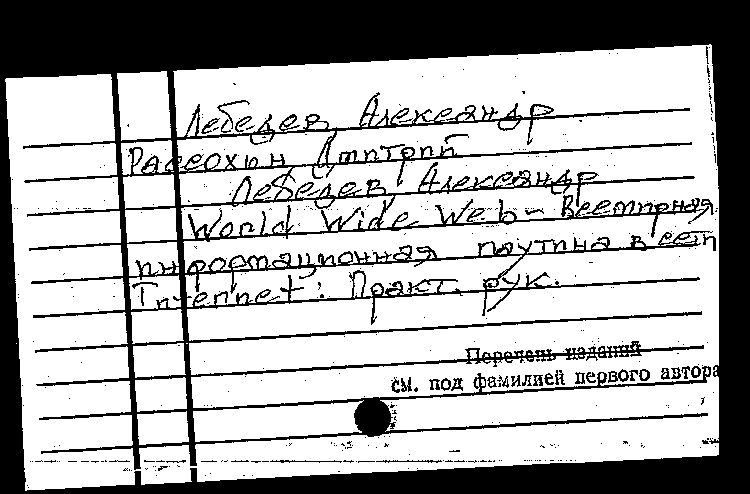 Лебедев, Александр
Расохин Дмитрий
Лебедев, Александр
World Wide Web - Всемирная
информационная паутина в сети
Internet: Практ. рук.
Перечень изданий
см. под фамилией первого автора